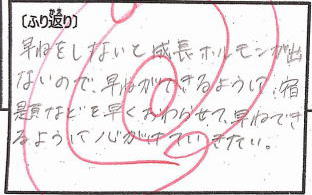 [ふり返り]
早ねをしないと成長ホルモンが出
ないので、早ねができるように、宿
題などを早くおわらせて、早ねでき
るように心がけていきたい。